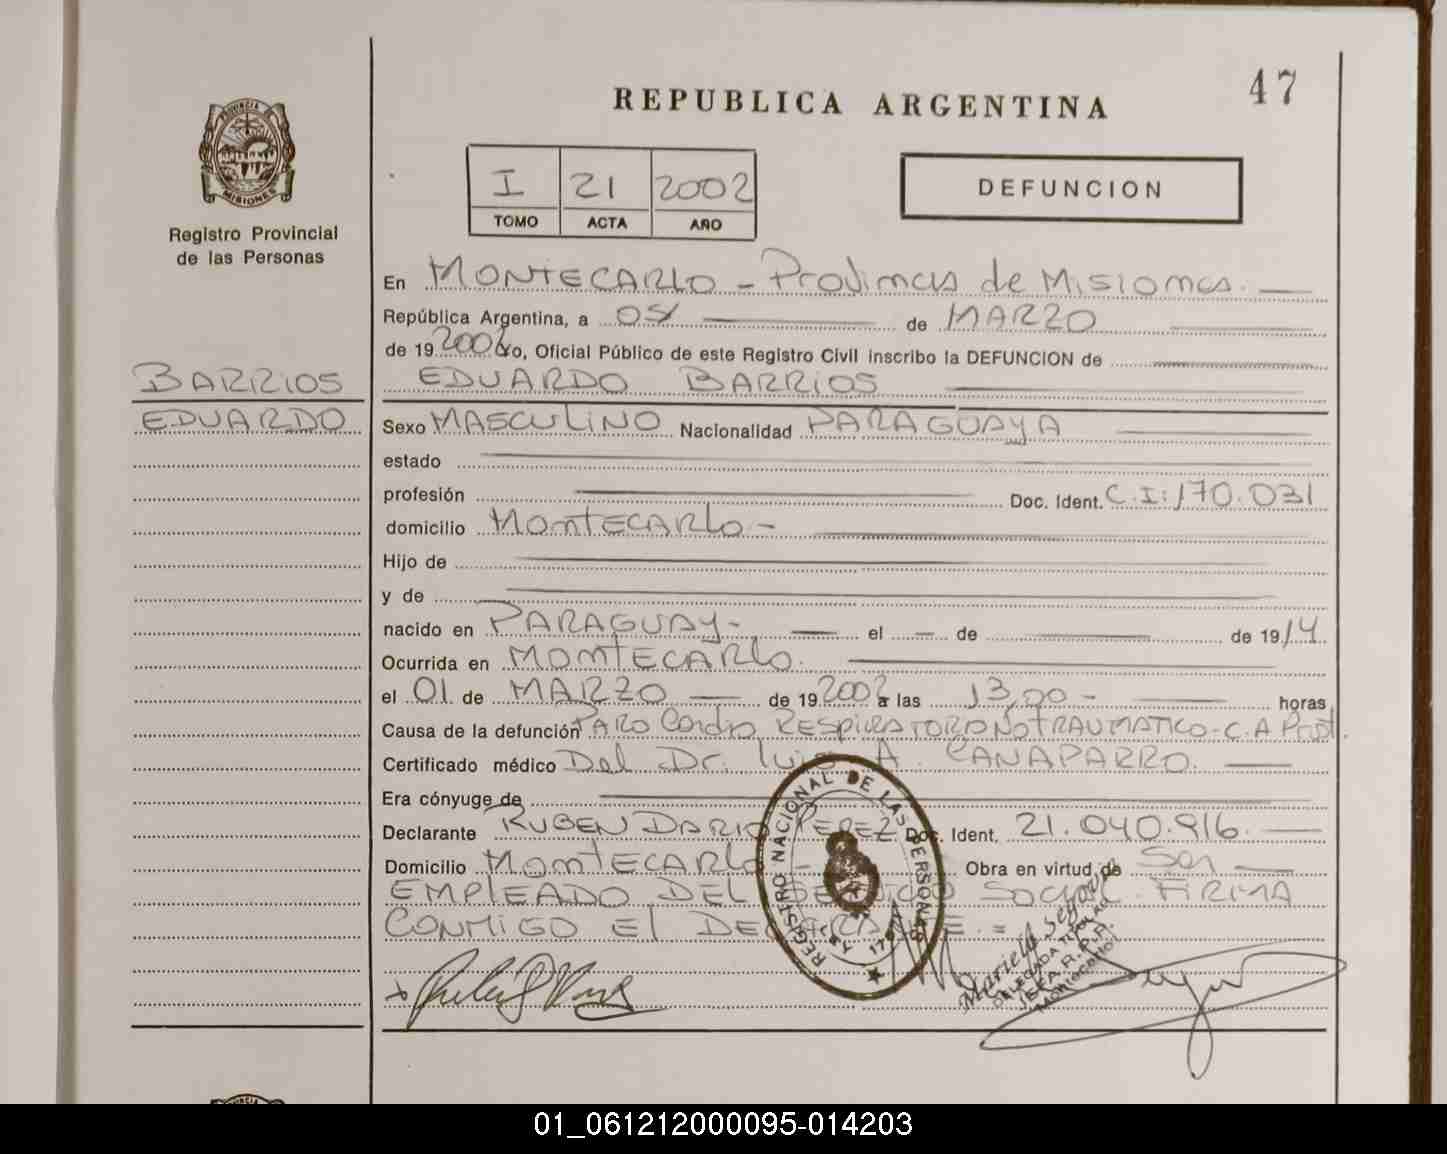 47
REPUBLICA ARGENTINA
PROVINCIA
MISIONES
Registro Provincial
de las Personas
I 21 2002
TOMO ACTA AÑO
DEFUNCION
En MONTECARLO - Provincia de Misiones.
República Argentina, a 05 de MARZO
de 19 2002 yo, Oficial Público de este Registro Civil inscribo la DEFUNCION de
BARRIOS
EDUARDO BARRIOS
EDUARDO
Sexo MASCULINO Nacionalidad PARAGUAYA
estado
profesión Doc. Ident. C.I: 170.031
domicilio MONTECARLO -
Hijo de
y de
nacido en PARAGUAY - el - de de 19 14
Ocurrida en MONTECARLO.
el 01 de MARZO de 19 2002 a las 13,00 - horas
Causa de la defunción PARO Cardio RESPIRATORIO NO TRAUMATICO - C.A Prost.
Certificado médico Del Dr. Luis A. CANAPARRO.
Era cónyuge de
Declarante RUBEN DARIO PEREZ Doc. Ident. 21.040.916.
Domicilio MONTECARLO - Obra en virtud de Ser
EMPLEADO DEL SERVICIO SOCIAL FIRMA
CONMIGO El DECLARANTE. =
REGISTRO NACIONAL DE LAS PERSONAS
LEY
Mariela Segovia
DELEGADA TITULAR
JEFA R.P.P.
01_061212000095-014203